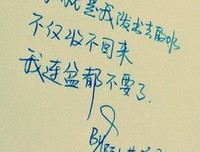 就是我泼出去的水
不仅收不回来
我连盆都不要了.
By